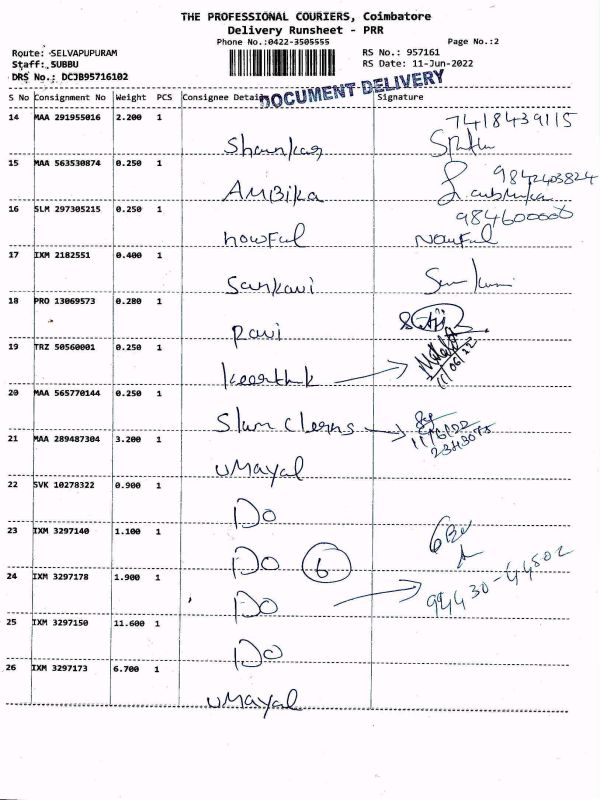 THE PROFESSIONAL COURIERS, Coimbatore
Delivery Runsheet - PRR
Phone No.:0422-3505555
Page No.:2
Route: SELVAPUPURAM
RS No.: 957161
Staff: SUBBU
RS Date: 11-Jun-2022
DRS No.: DCJB95716102
DOCUMENT DELIVERY
S No Consignment No Weight PCS Consignee Details Signature
14 MAA 291955016 2.200 1
7418439115
Shankar
15 MAA 563530874 0.250 1
9842403824
AMBika
16 SLM 297305215 0.250 1
9846000000
nowFul Nowful
17 IXM 2182551 0.400 1
Sankavi
18 PRO 13069573 0.280 1
Ravi
19 TRZ 50560001 0.250 1
11/06/22
Keerthik
20 MAA 565770144 0.250 1
11/6/22
21 MAA 289487304 3.200 1
uMayal
22 SVK 10278322 0.900 1
Do
23 IXM 3297140 1.100 1
Do 6
24 IXM 3297178 1.900 1
Do 94430-44802
25 IXM 3297150 11.600 1
Do
26 IXM 3297173 6.700 1
uMayal